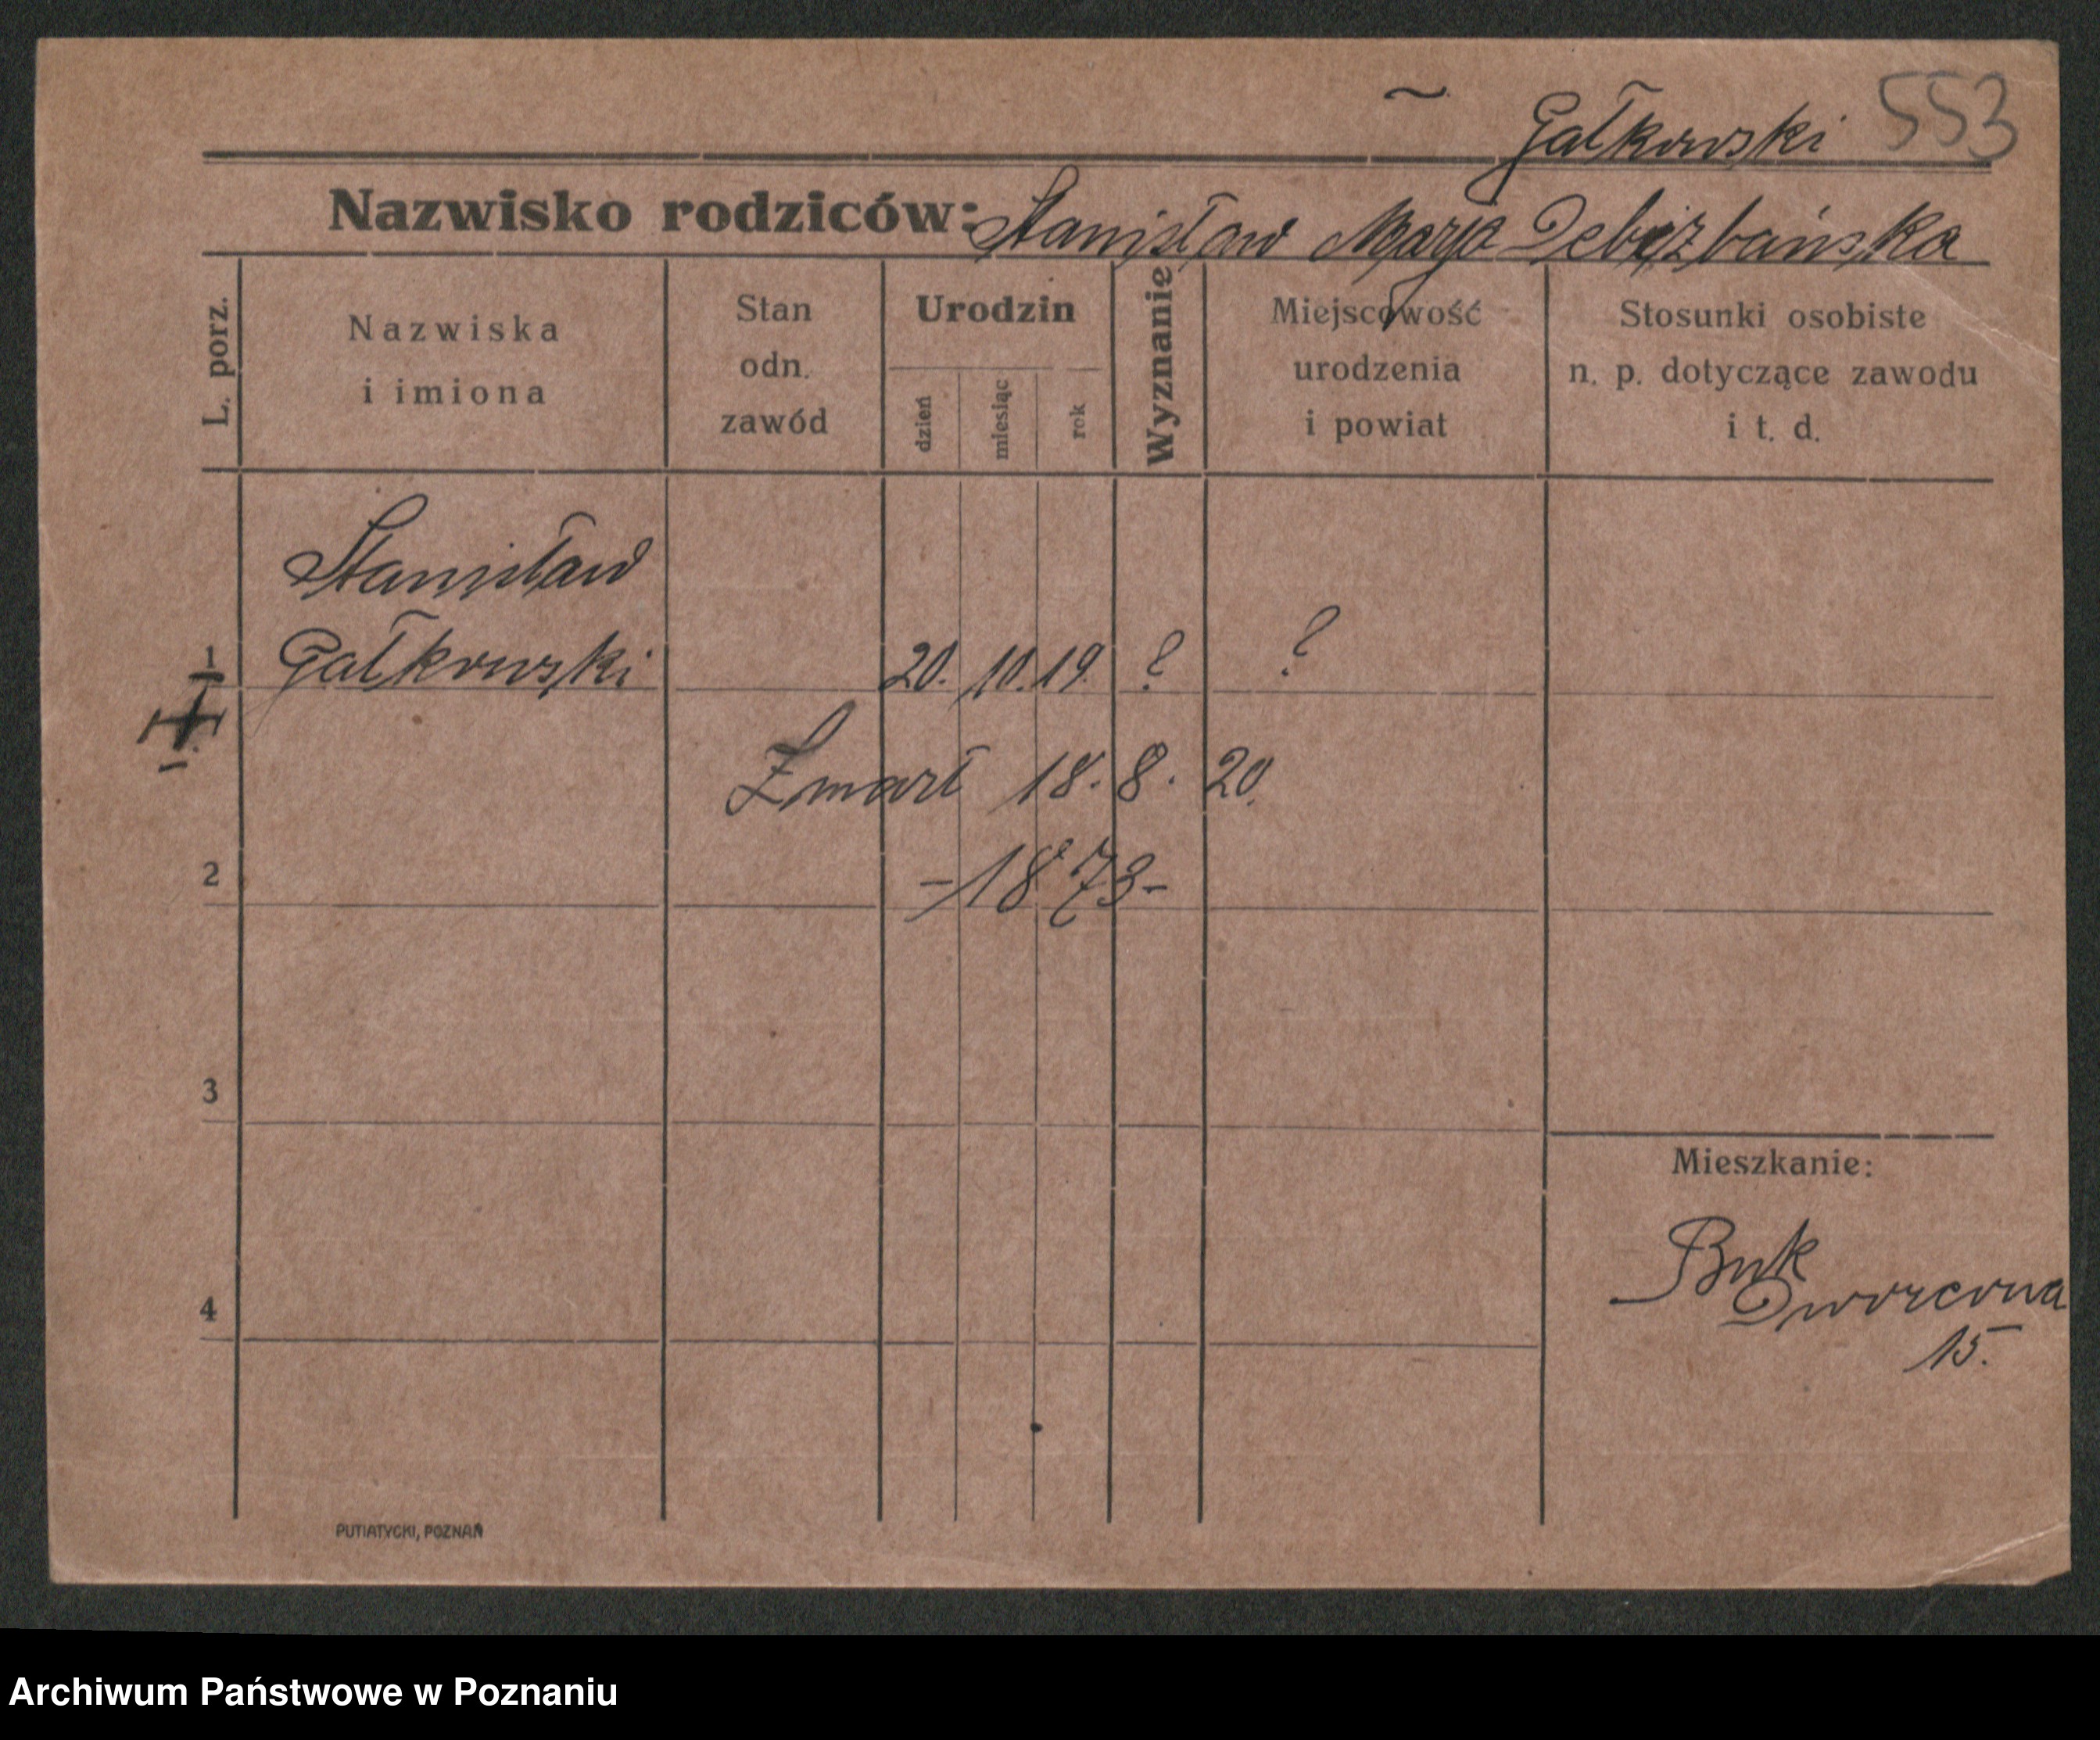 553
Gałkowski
Nazwisko rodziców: Stanisław Marja
L. porz.
Nazwiska i imiona
Stan odn. zawód
Urodzin
dzień
miesiąc
rok
Wyznanie
Miejscowość urodzenia i powiat
Stosunki osobiste n. p. dotyczące zawodu i t. d.
Stanisław
1 Gałkowski 20. 10. 19. ? ?
Zmarł 18. 8. 20.
-1873-
2
3
Mieszkanie:
Buk
Dworcowa
15.
4
PUTIATYCKI, POZNAŃ
Archiwum Państwowe w Poznaniu